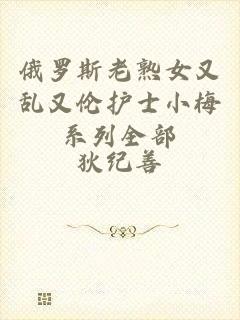 俄罗斯老熟女又
乱又伦护士小梅
系列全部
狄纪善